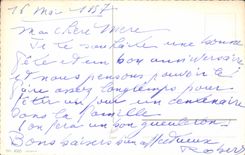 16 Mai 1957
Ma chère Mère
Je te souhaite une bonne
fête et un bon anniversaire
et nous pensons pouvoir le
faire assez longtemps pour
fêter un jour un centenaire
dans la famille
On fera un bon gueuleton
Bons baisers affectueux
Robert